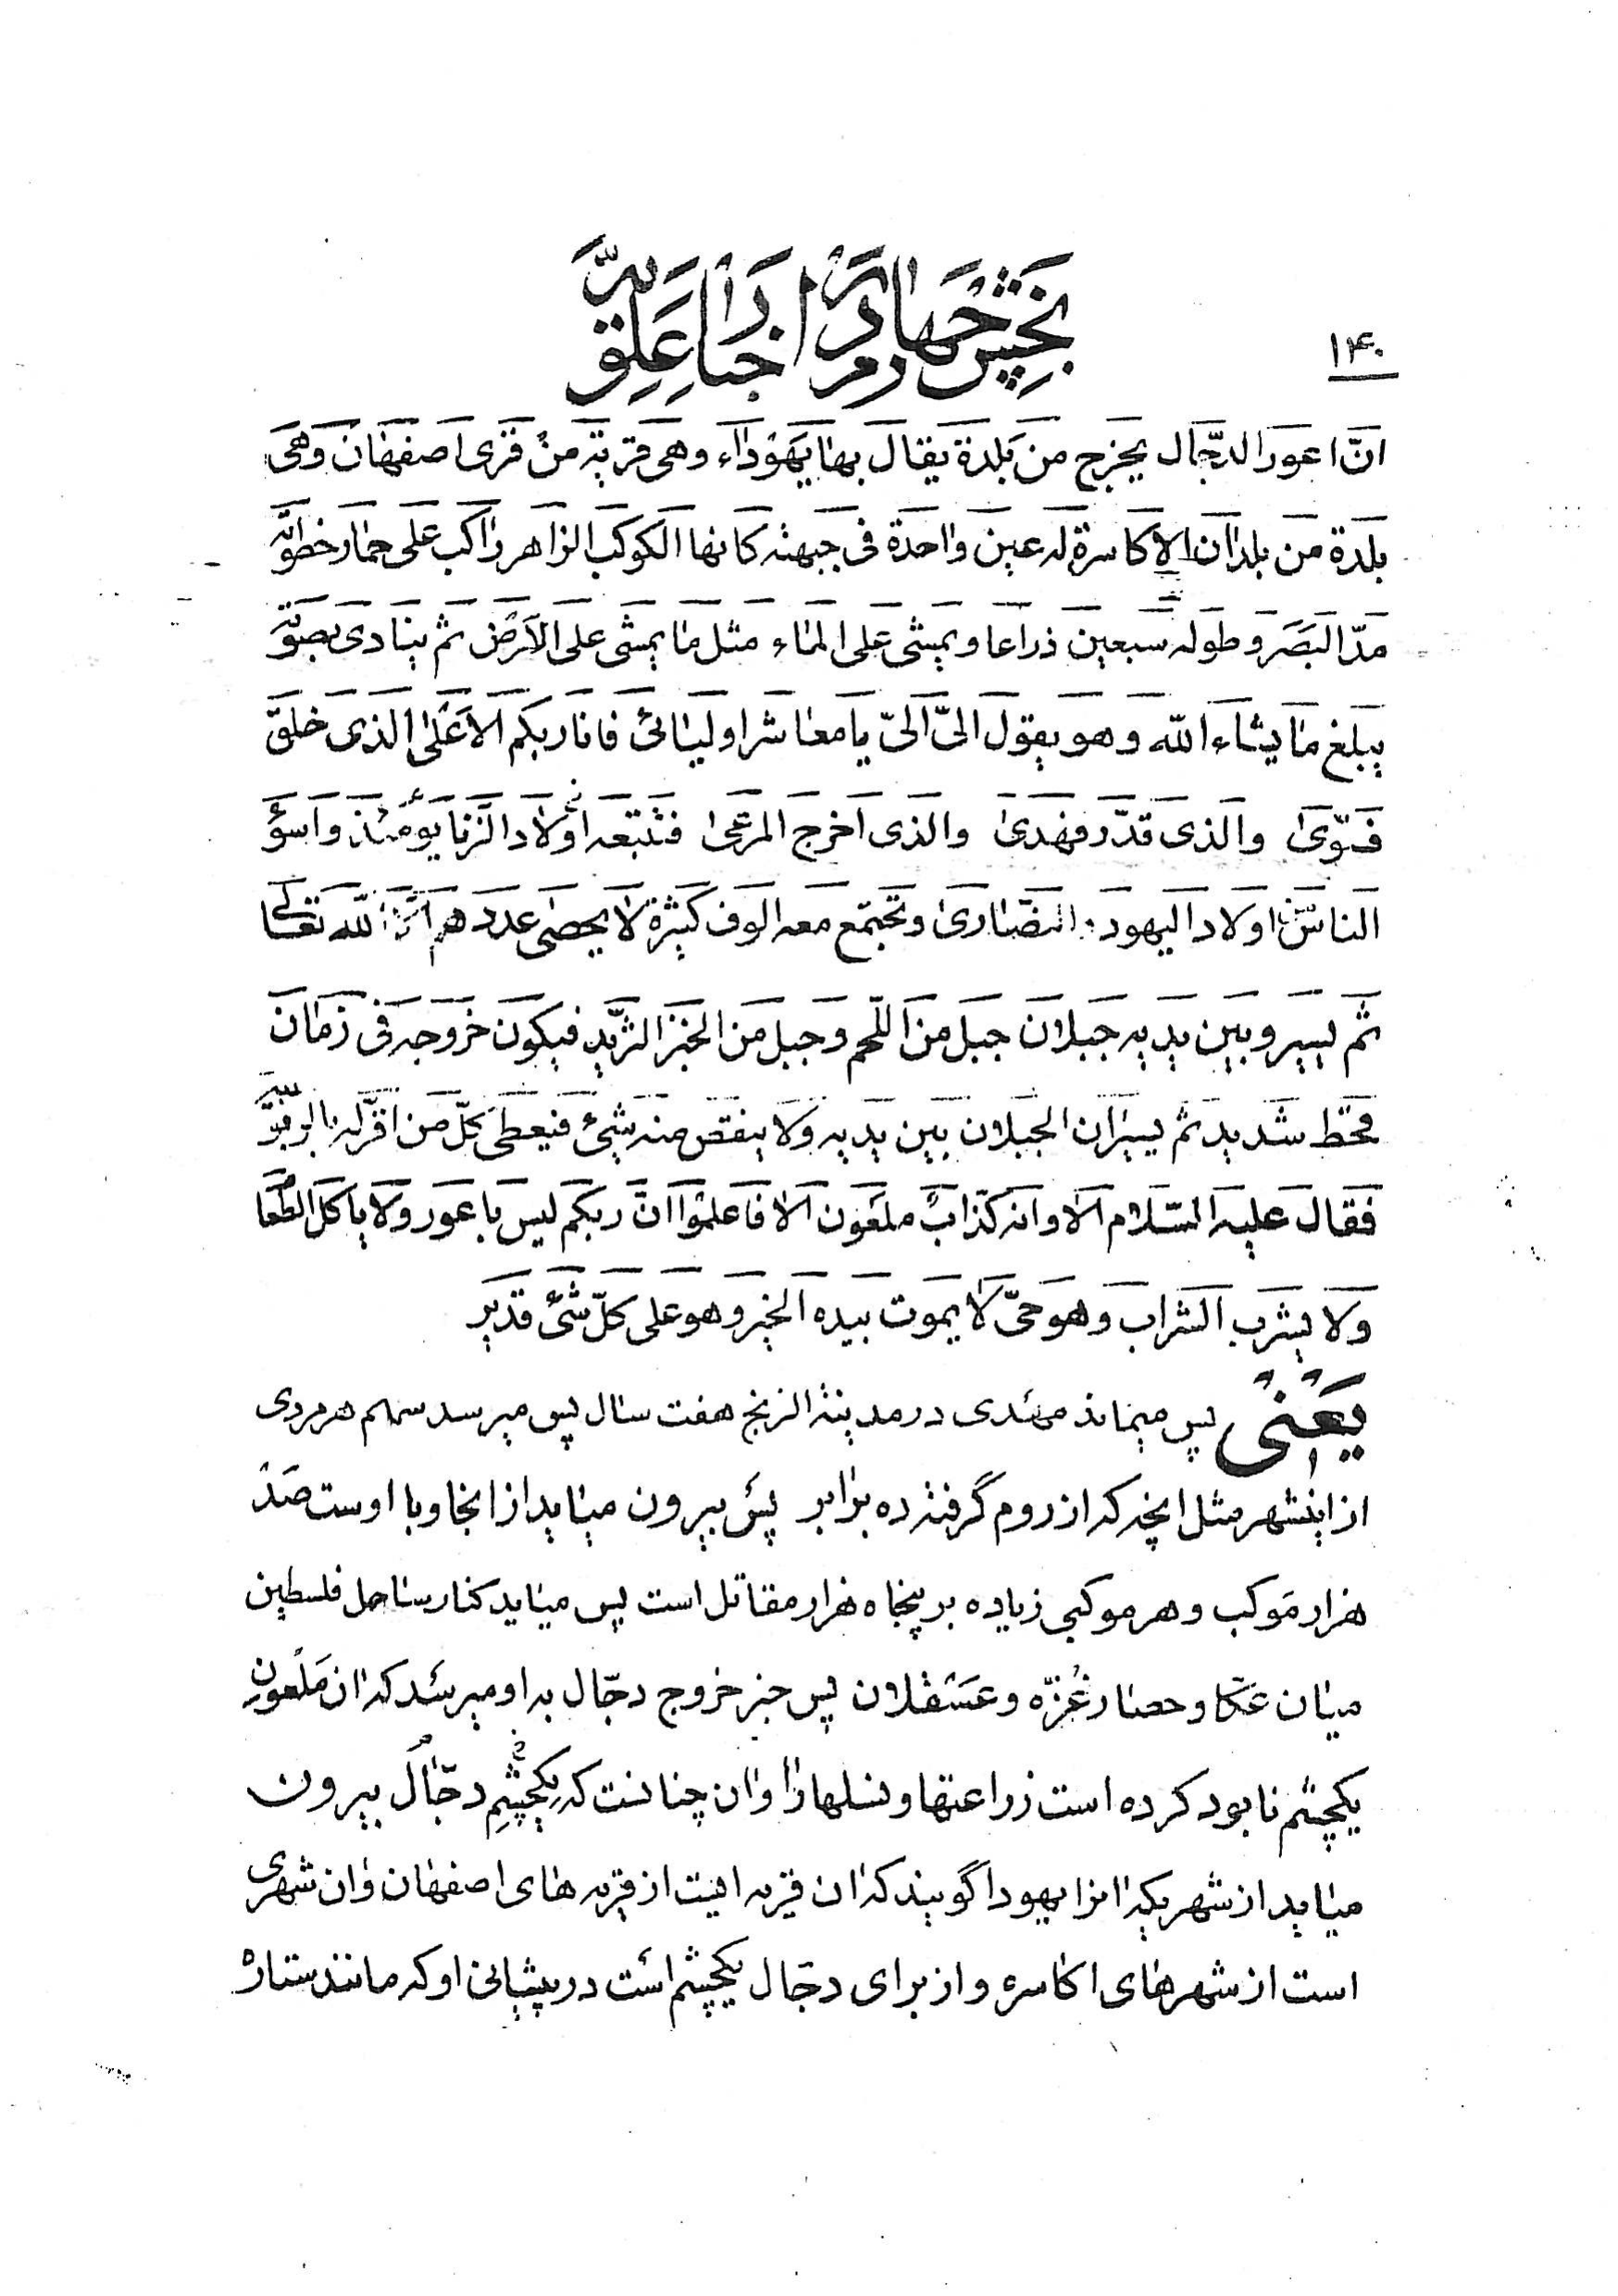 ۱۴۰
بخش چهارم در اخبار علویه
انّ اعور الدجّال یخرج من بلدة یقال بها یهوداء وهی قریة من قری اصفهان وهی
بلدة من بلدان الاکاسرة له عین واحدة فی جبهته کانها الکوکب الزاهر راکب علی حمار خطوته
مدّ البصر وطوله سبعین ذراعا ویمشی علی الماء مثل ما یمشی علی الارض ثم ینادی بصوته
یبلغ ما یشاء الله وهو یقول الیّ الیّ یا معاشر اولیائی فانا ربکم الاعلی الذی خلق
فسوّی والذی قدّر فهدی والذی اخرج المرعی فتتبعه اولاد الزنا یومئذ واسؤ
الناس اولاد الیهود والنصاری وتجتمع معه الوف کثیرة لا یحصی عددهم الا الله تعالی
ثم یسیر وبین یدیه جبلان جبل من اللحم وجبل من الخبز الثرید فیکون خروجه فی زمان
قحط شدید ثم یسیران الجبلان بین یدیه ولا ینقص منه شیئ فیعطی کلّ من اقرّ له بالربوبیّة
فقال علیه السّلام الا وانه کذّاب ملعون الا فاعلموا انّ ربکم لیس باعور ولا یاکل الطعام
ولا یشرب الشراب وهو حیّ لا یموت بیده الخیر وهو علی کلّ شیئ قدیر
یعنی پس میماند مهدی در مدینة الزنج هفت سال پس میرسد سهم هر مردی
از اینشهر مثل انچه که از روم گرفته ده برابر پس بیرون میاید از انجا و با اوست صد
هزار موکب و هر موکبی زیاده بر پنجاه هزار مقاتل است پس میاید کنار ساحل فلسطین
میان عکّا و حصار غزّه و عسقلان پس خبر خروج دجّال به او میرسد که ان ملعون
یکچشم نابود کرده است زراعتها و نسلها را و ان چنانست که یکچشم دجّال بیرون
میاید از شهریکه انرا یهودا گویند که ان قریه ایست از قریه های اصفهان و ان شهری
است از شهرهای اکاسره و از برای دجّال یکچشم است در پیشانی او که مانند ستاره